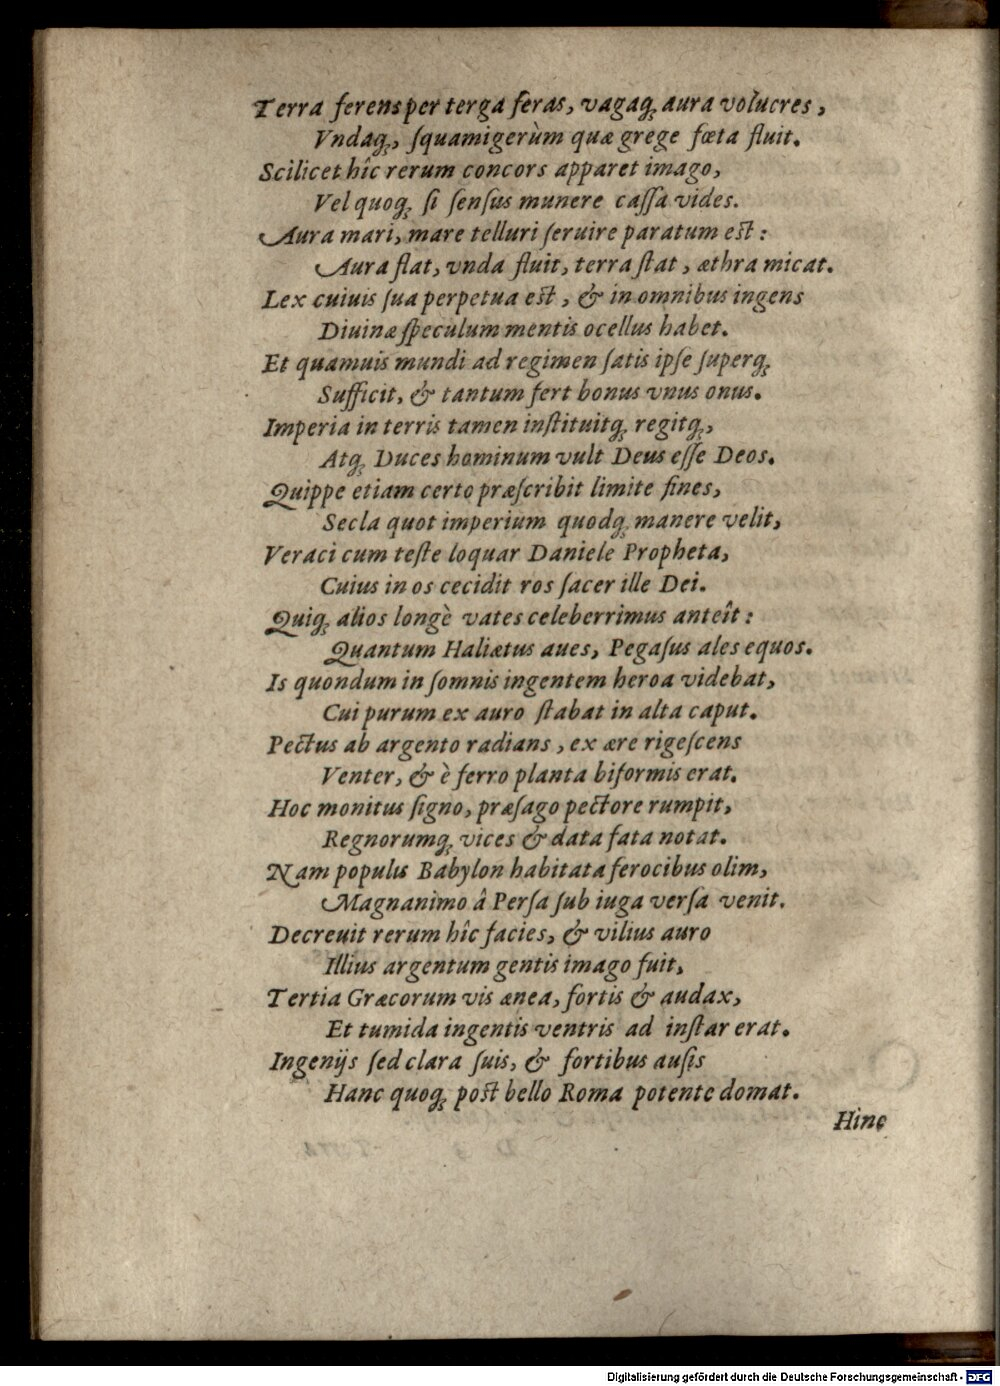 Terra ferens per terga feras, vagaq́; aura volucres,
Vndaq́;, ſquamigerùm quæ grege fœta fluit.
Scilicet hîc rerum concors apparet imago,
Vel quoq́; ſi ſenſus munere caſſa vides.
Aura mari, mare telluri ſeruire paratum est:
Aura flat, vnda fluit, terra ſtat, æthra micat.
Lex cuiuis ſua perpetua est, & in omnibus ingens
Diuinæ ſpeculum mentis ocellus habet.
Et quamuis mundi ad regimen ſatis ipſe ſuperq́;
Sufficit, & tantum fert bonus vnus onus.
Imperia in terris tamen inſtituitq́; regitq́;,
Atq́; Duces hominum vult Deus eſſe Deos.
Quippe etiam certo præſcribit limite fines,
Secla quot imperium quodq́; manere velit,
Veraci cum teſte loquar Daniele Propheta,
Cuius in os cecidit ros ſacer ille Dei.
Quiq́; alios longè vates celeberrimus anteît:
Quantum Haliætus aues, Pegaſus ales equos.
Is quondum in ſomnis ingentem heroa videbat,
Cui purum ex auro ſtabat in alta caput.
Pectus ab argento radians, ex ære rigeſcens
Venter, & è ferro planta biformis erat.
Hoc monitus ſigno, præſago pectore rumpit,
Regnorumq́; vices & data fata notat.
Nam populis Babylon habitata ferocibus olim,
Magnanimo â Perſa ſub iuga verſa venit.
Decreuit rerum hîc facies, & vilius auro
Illius argentum gentis imago fuit,
Tertia Græcorum vis ænea, fortis & audax,
Et tumida ingentis ventris ad inſtar erat.
Ingenijs ſed clara ſuis, & fortibus auſis
Hanc quoq́; post bello Roma potente domat.
Hinc
Digitalisierung gefördert durch die Deutsche Forschungsgemeinschaft - DFG